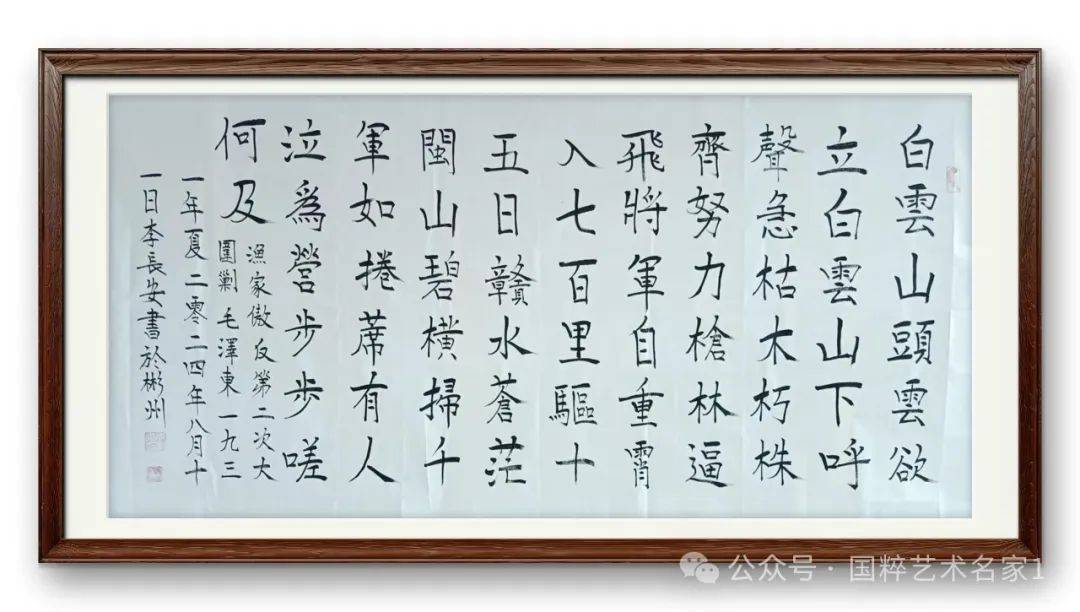 白雲山頭雲欲
立白雲山下呼
聲急枯木朽株
齊努力槍林逼
飛將軍自重霄
入七百里驅十
五日贛水蒼茫
閩山碧橫掃千
軍如捲蓆有人
泣爲營步步嗟
何及
漁家傲反第二次大
圍剿毛澤東一九三
一年夏二零二四年八月十
一日李長安書於彬州
公众号 · 国粹艺术名家1